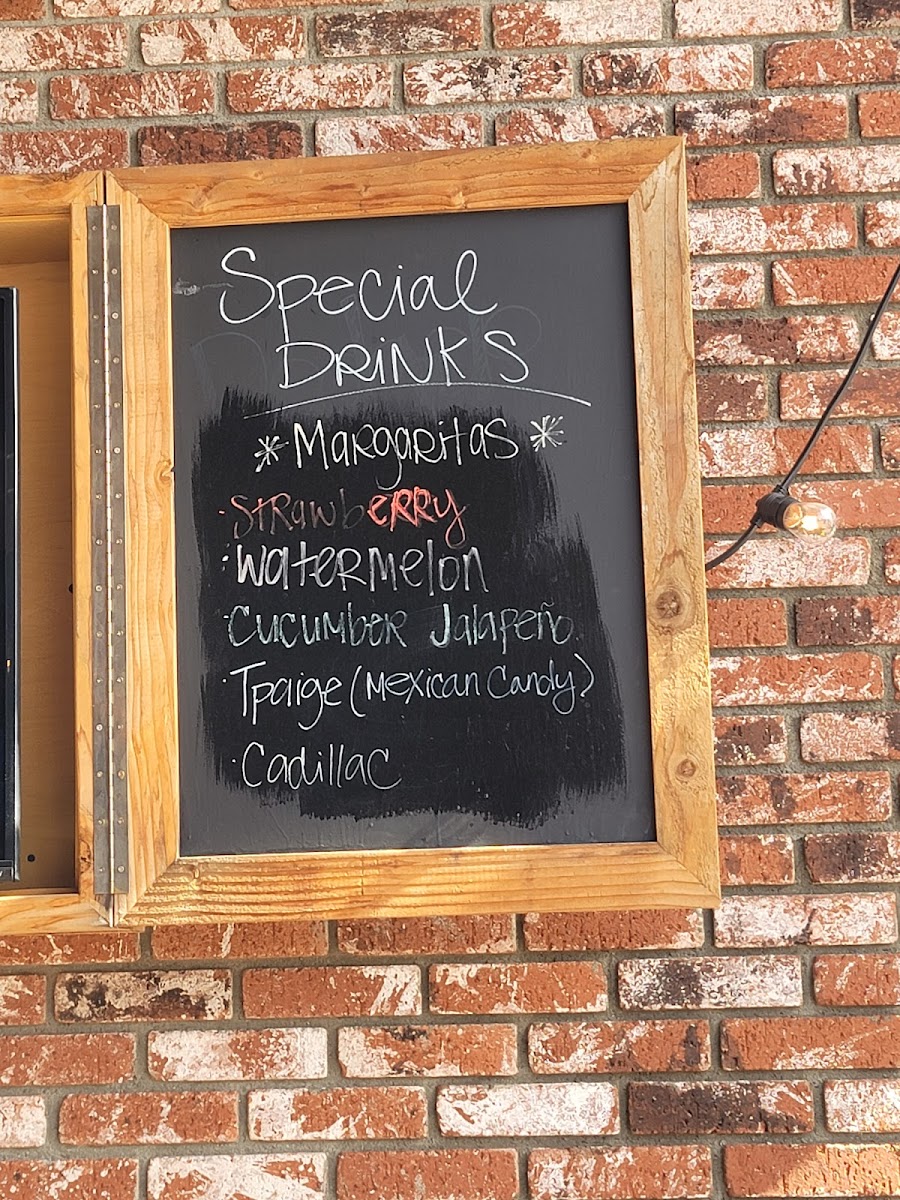 Special
DRINKS
*MaRgaRitas*
·StRawbERRY
·WatERmelon
·CUCUMbER Jalapeño
·Tpaige (Mexican Candy)
·Cadillac